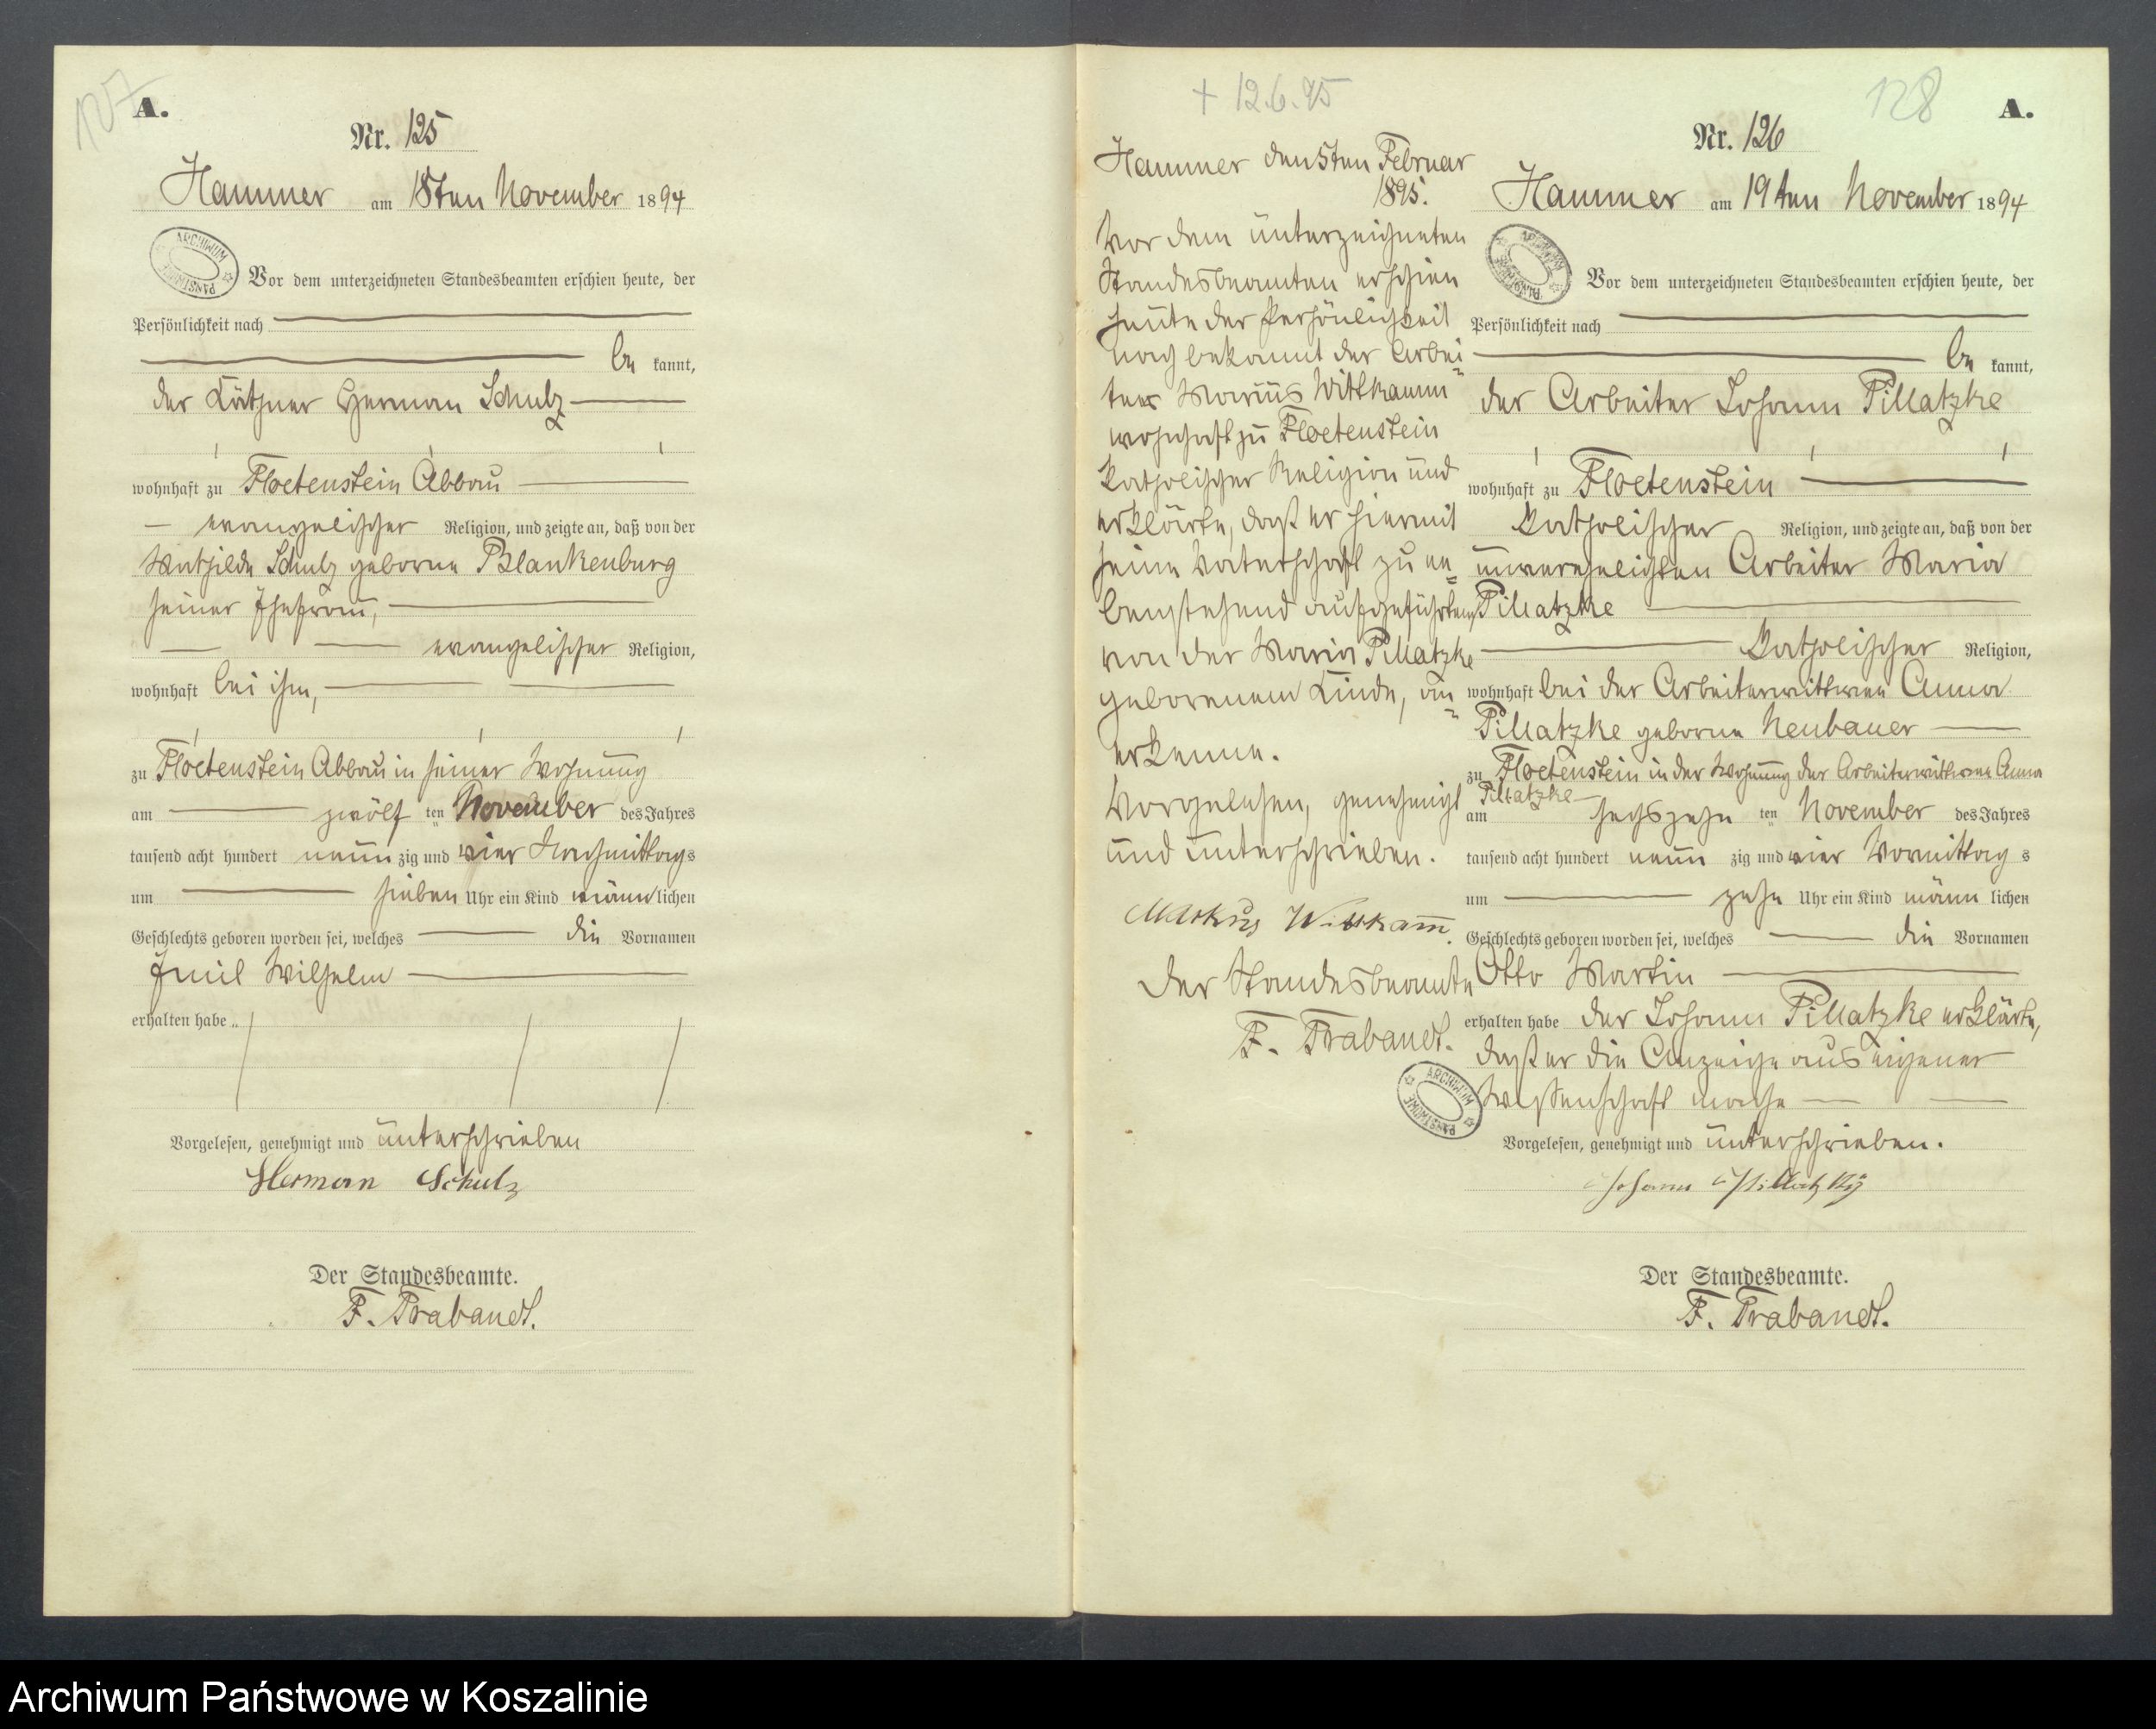 127
A.
Nr. 125
Hammer am 18ten November 1894
ARCHIWUM PAŃSTWOWE
Vor dem unterzeichneten Standesbeamten erschien heute, der
Persönlichkeit nach
be kannt,
der Käthner Herman Schulz
wohnhaft zu Floetenstein Abbau
evangelischer Religion, und zeigte an, daß von der
Mathilde Schulz geborne Blankenburg
seiner Ehefrau,
evangelischer Religion,
wohnhaft bei ihm,
zu Floetenstein Abbau in seiner Wohnung
am zwölf ten November des Jahres
tausend acht hundert neun zig und vier Nachmittags
um sieben Uhr ein Kind männlichen
Geschlechts geboren worden sei, welches die Vornamen
Emil Wilhelm
erhalten habe
Vorgelesen, genehmigt und unterschrieben
Herman Schulz
Der Standesbeamte.
F. Trabandt.
+ 12.6.95
Hammer den 5ten Februar
1895.
Vor dem unterzeichneten
Standesbeamten erschien
heute der Persönlichkeit
nach bekannt der Arbei-
ter Wittkamm
wohnhaft zu Floetenstein
katholischer Religion und
erklärte, daß er hiermit
seine Vaterschaft zu ne-
benstehend aufgeführtem,
von der Maria Pillatzke
geborenem Kinde, an-
erkenne.
Vorgelesen, genehmigt
und unterschrieben.
Markus Wittkamm.
Der Standesbeamte
F. Trabandt.
ARCHIWUM PAŃSTWOWE
128
A.
Nr. 126
Hammer am 19ten November 1894
ARCHIWUM PAŃSTWOWE
Vor dem unterzeichneten Standesbeamten erschien heute, der
Persönlichkeit nach
be kannt,
der Arbeiter Johann Pillatzke
wohnhaft zu Floetenstein
katholischer Religion, und zeigte an, daß von der
unverehelichten Arbeiter Maria
Pillatzke
katholischer Religion,
wohnhaft bei der Arbeiterwittwe Anna
Pillatzke geborne Neubauer
zu Floetenstein in der Wohnung der Arbeiterwittwe Anna
Pillatzke
am sechszehn ten November des Jahres
tausend acht hundert neun zig und vier Vormittag s
um zehn Uhr ein Kind männ lichen
Geschlechts geboren worden sei, welches die Vornamen
Otto Martin
erhalten habe der Johann Pillatzke erklärte,
daß er die Anzeige aus eigener
Wissenschaft mache
Vorgelesen, genehmigt und unterschrieben.
Johann Pillatzky
Der Standesbeamte.
F. Trabandt.
Archiwum Państwowe w Koszalinie